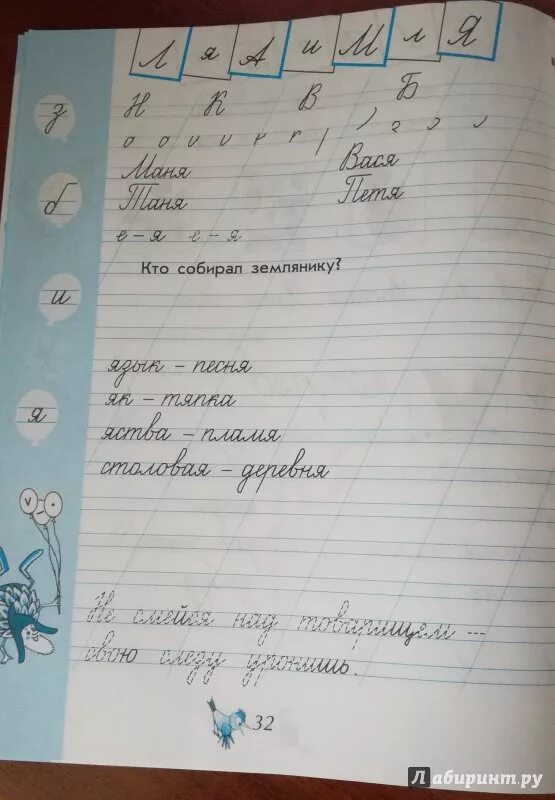 Л я А и М л Я
з Н К В Б
Маня Вася
б Таня Петя
е – я е – я
Кто собирал землянику?
и
язык – песня
як – тяпка
я яства – пламя
столовая – деревня
Не смейся над товарищем –
свою следу уронишь.
32
Лабиринт.ру